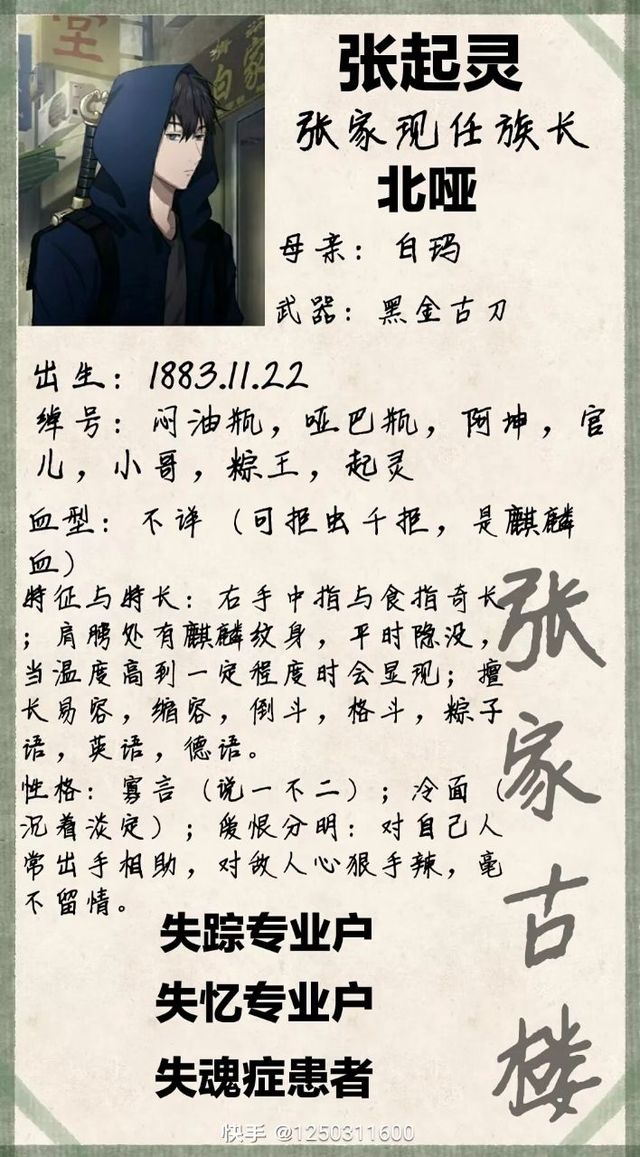 堂
白家
张起灵
张家现任族长
北哑
母亲：白玛
武器：黑金古刀
出生：1883.11.22
绰号：闷油瓶，哑巴瓶，阿坤，官
儿，小哥，粽王，起灵
血型：不详（可拒虫千拒，是麒麟
血）
特征与特长：右手中指与食指奇长
；肩膀处有麒麟纹身，平时隐没，
当温度高到一定程度时会显现；擅
长易容，缩容，倒斗，格斗，粽子
语，英语，德语。
性格：寡言（说一不二）；冷面（
沉着淡定）；爱恨分明：对自己人
常出手相助，对敌人心狠手辣，毫
不留情。
张家古楼
失踪专业户
失忆专业户
失魂症患者
快手 @1250311600